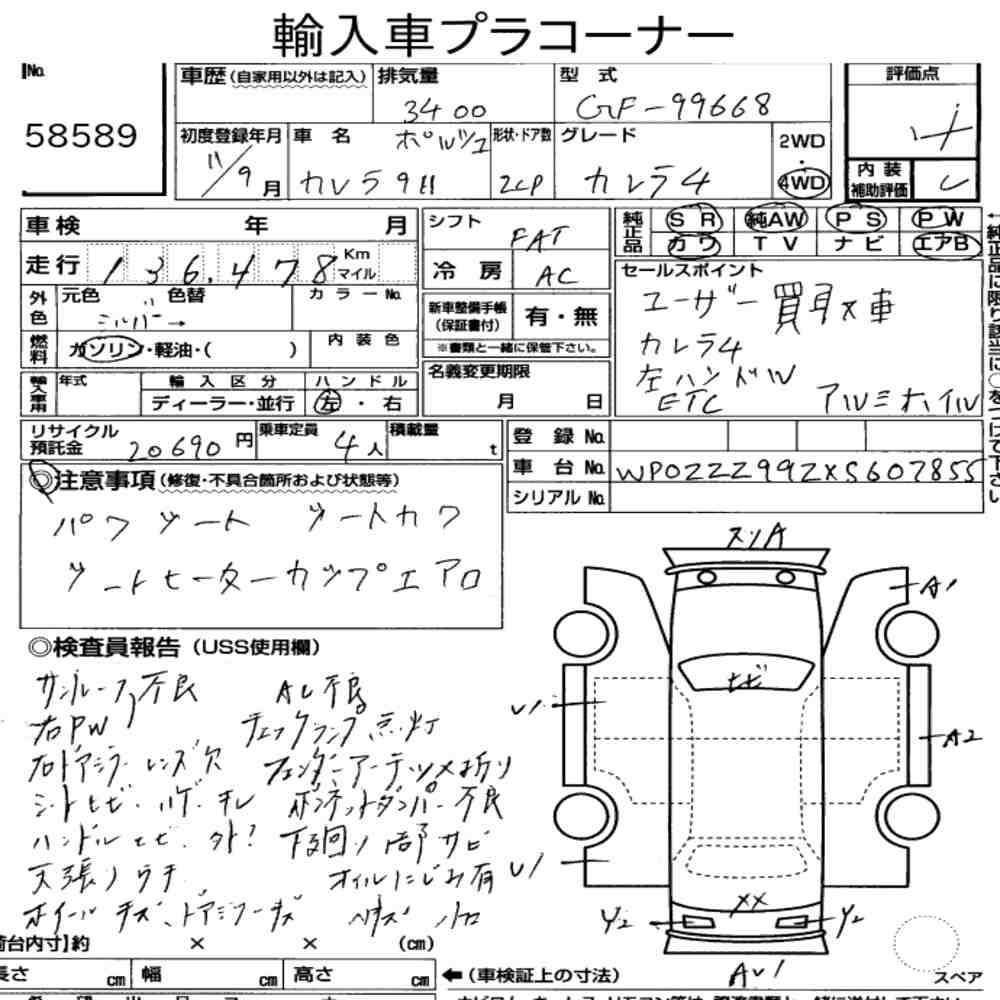 輸入車プラコーナー
No.
58589
車歴 (自家用以外は記入)
排気量
3400
型 式
GF-99668
評価点
4
初度登録年月
11/9月
車 名
ポルシェ
カレラ911
形状・ドア数
2CP
グレード
カレラ4
2WD
・
4WD
内 装
補助評価
C
車検 年 月
走行 136,478 Km
マイル
外色
元色 色替
シルバー →
カラーNo.
燃料
ガソリン・軽油・( )
内 装 色
輸入車用
年式
輸 入 区 分
ディーラー・並行
ハ ン ド ル
左 ・ 右
シフト
FAT
冷 房
AC
新車整備手帳
(保証書付)
有・無
※書類と一緒に保管下さい。
名義変更期限
月 日
純正品
SR 純AW PS PW
カワ TV ナビ エアB
セールスポイント
ユーザー買取車
カレラ4
左ハンドル
ETC アルミホイル
リサイクル
預託金 20690 円
乗車定員
4人
積載量
t
登 録 No.
車 台 No. WP0ZZZ99ZXS607855
シリアル No.
◎注意事項 (修復・不具合箇所および状態等)
パワシート シートカワ
シートヒーター カップエアロ
◎検査員報告 (USS使用欄)
サンルーフ不良 AC不良
右PW チェックランプ点灯
右ドアミラーレンズ欠 フェンダーアーチツメ折り
シートヒビ・ハゲ・チレ ボンネットダンパー不良
ハンドルヒビ・外? 下回り部サビ
天張りウキ オイルにじみ有
ホイールキズ、ドアミラーキズ
スリA
A1
ヒビ
U1
A2
U1
XX
Y2
Y2
AU1
スペア
荷台内寸】約 × × (cm)
長さ cm 幅 cm 高さ cm
← (車検証上の寸法)